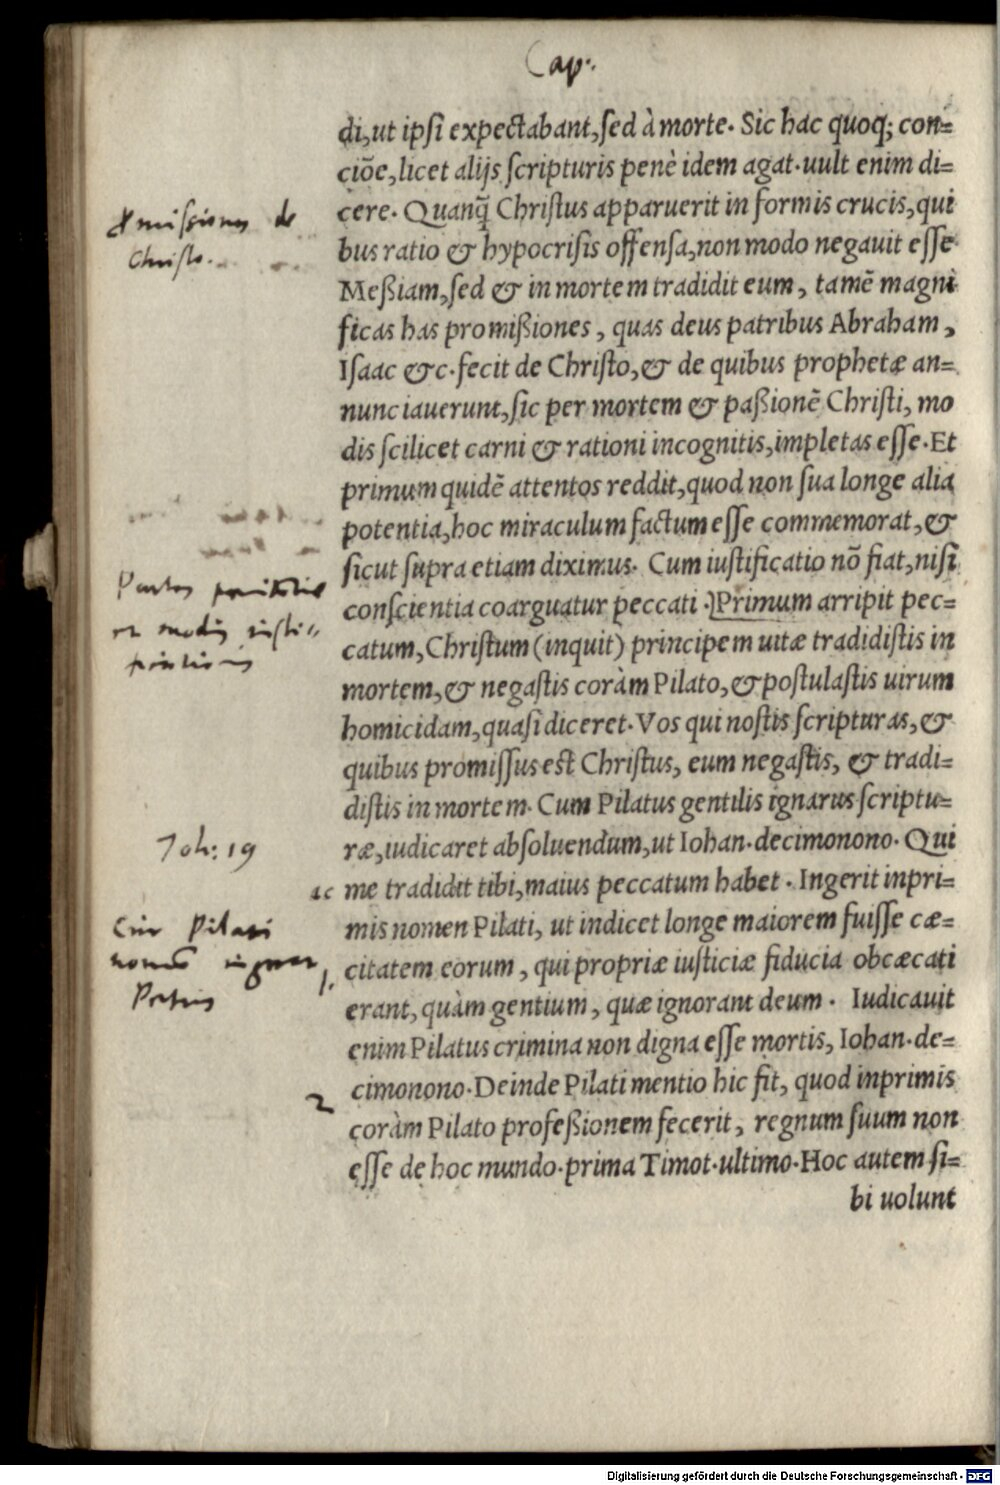 Cap.
di, ut ipsi expectabant, sed à morte. Sic hac quoq; con=
ciõe, licet alijs scripturis penè idem agat. uult enim di=
cere. Quanq̃ Christus apparuerit in formis crucis, qui
bus ratio & hypocrisis offensa, non modo negauit esse
Meßiam, sed & in mortem tradidit eum, tamẽ magni
ficas has promißiones, quas deus patribus Abraham,
Isaac &c. fecit de Christo, & de quibus prophetæ an=
nunciauerunt, sic per mortem & paßionẽ Christi, mo
dis scilicet carni & rationi incognitis, impletas esse. Et
primum quidẽ attentos reddit, quod non sua longe alia
potentia, hoc miraculum factum esse commemorat, &
sicut supra etiam diximus. Cum iustificatio nõ fiat, nisi
conscientia coarguatur peccati. Primum arripit pec=
catum, Christum (inquit) principem uitæ tradidistis in
mortem, & negastis coràm Pilato, & postulastis uirum
homicidam, quasi diceret. Vos qui nostis scripturas, &
quibus promissus est Christus, eum negastis, & tradi=
distis in mortem. Cum Pilatus gentilis ignarus scriptu=
ræ, iudicaret absoluendum, ut Iohan. decimonono. Qui
me tradidit tibi, maius peccatum habet. Ingerit inpri=
mis nomen Pilati, ut indicet longe maiorem fuisse cæ=
citatem eorum, qui propriæ iusticiæ fiducia obcæcati
erant, quàm gentium, quæ ignorant deum. Iudicauit
enim Pilatus crimina non digna esse mortis, Iohan. de=
cimonono. Deinde Pilati mentio hic fit, quod inprimis
coràm Pilato profeßionem fecerit, regnum suum non
esse de hoc mundo. prima Timot. ultimo. Hoc autem si=
bi uolunt
de
Christo.
Joh: 19
Cur Pilati
Petrus
1.
2
Digitalisierung gefördert durch die Deutsche Forschungsgemeinschaft - DFG